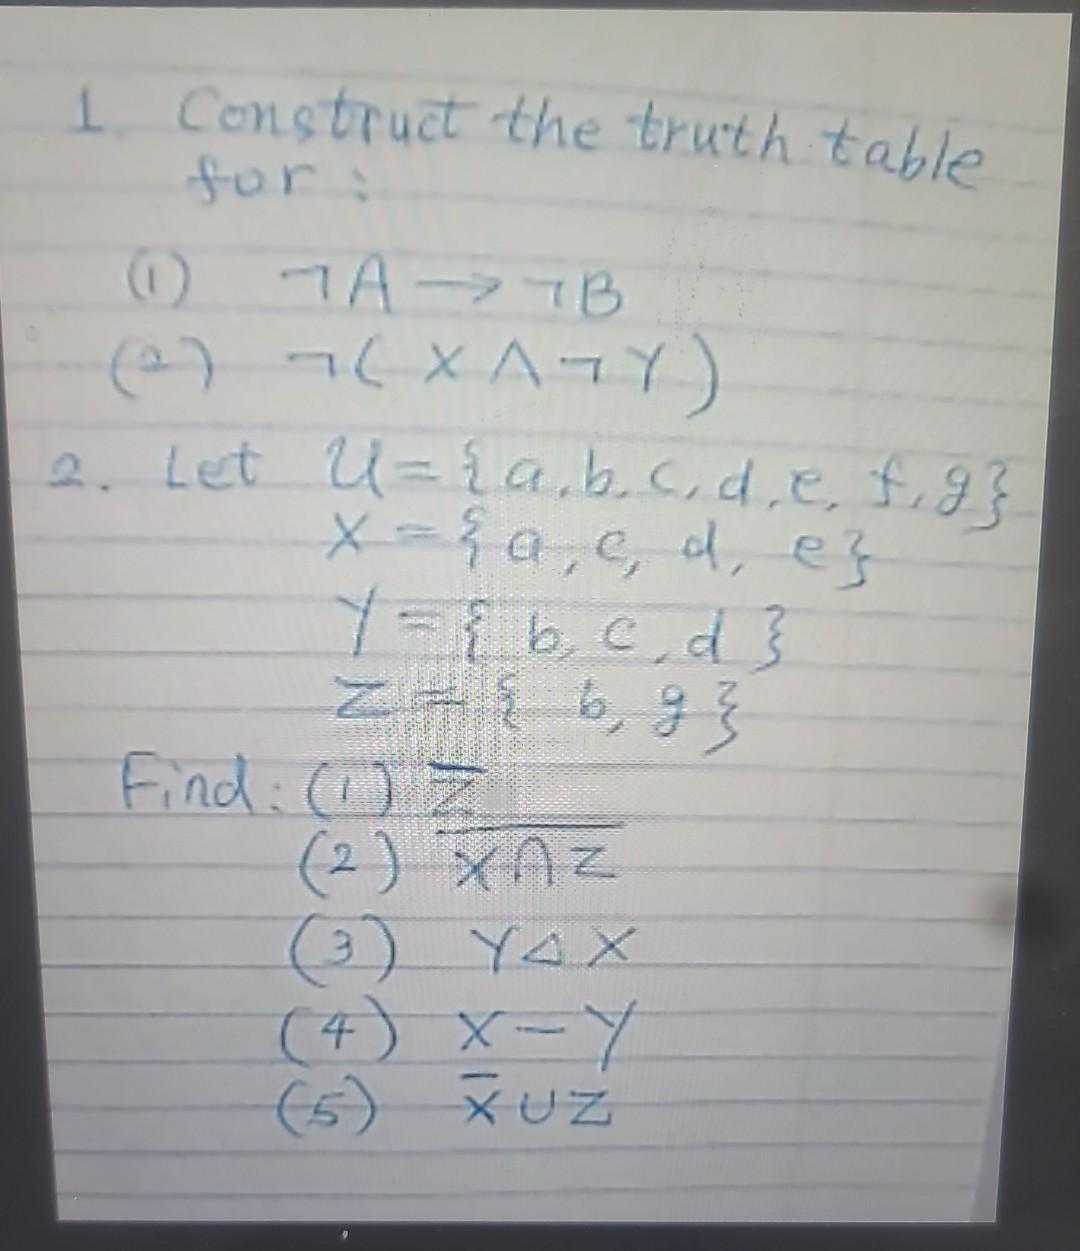 1. Construct the truth table
for :
(1) ¬A → ¬B
(2) ¬( X ∧ ¬ Y )
2. Let U = {a, b, c, d, e, f, g}
X = {a, c, d, e}
Y = { b, c, d }
Z = { b, g }
Find : (1) Z̅
(2) X̅ ̅∩̅ ̅Z̅
(3) Y △ X
(4) X - Y
(5) X̅ ∪ Z